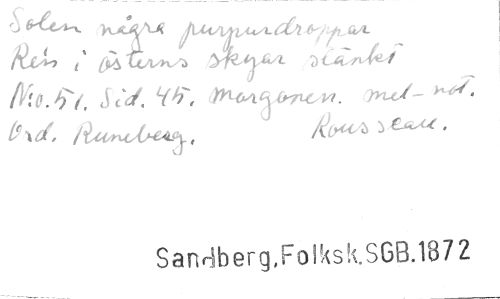 Solen några purpurdroppar
Re'n i österns skyar stänkt
N:o. 51. Sid. 45. Morgonen. mel-not.
Ord. Runeberg. Rousseau.
Sandberg, Folksk. SGB. 1872